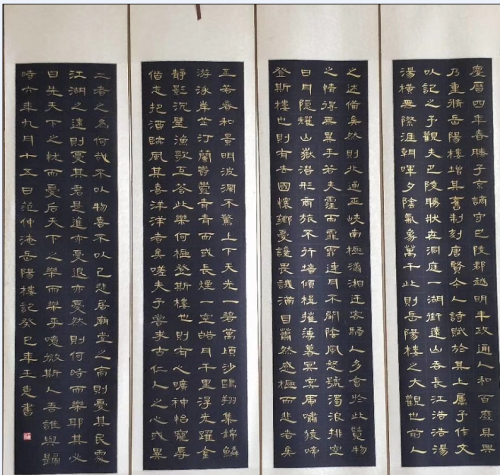 慶曆四年春滕子京謫守巴陵郡越明年政通人和百廢具興
乃重修岳陽樓增其舊制刻唐賢今人詩賦於其上屬予作文
以記之予觀夫巴陵勝狀在洞庭一湖銜遠山吞長江浩浩湯
湯橫無際涯朝暉夕陰氣象萬千此則岳陽樓之大觀也前人
之述備矣然則北通巫峽南極瀟湘遷客騷人多會於此覽物
之情得無異乎若夫霪雨霏霏連月不開陰風怒號濁浪排空
日星隱耀山嶽潛形商旅不行檣傾楫摧薄暮冥冥虎嘯猿啼
登斯樓也則有去國懷鄉憂讒畏譏滿目蕭然感極而悲者矣
至若春和景明波瀾不驚上下天光一碧萬頃沙鷗翔集錦鱗
游泳岸芷汀蘭郁郁青青而或長煙一空皓月千里浮光躍金
靜影沉璧漁歌互答此樂何極登斯樓也則有心曠神怡寵辱
偕忘把酒臨風其喜洋洋者矣嗟夫予嘗求古仁人之心或異
二者之為何哉不以物喜不以己悲居廟堂之高則憂其民處
江湖之遠則憂其君是進亦憂退亦憂然則何時而樂耶其必
曰先天下之憂而憂后天下之樂而樂乎噫微斯人吾誰與歸
時六年九月十五日范仲淹岳陽樓記癸巳年王書